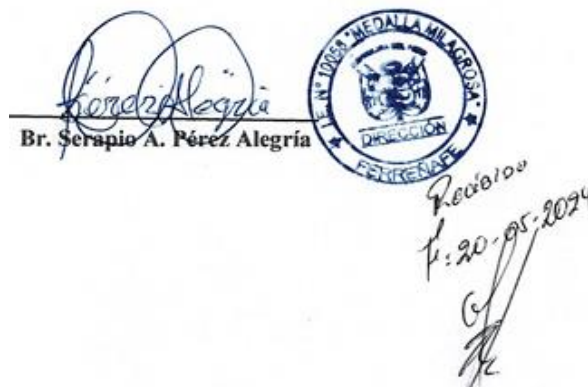 Pérez Alegría
Br. Serapio A. Pérez Alegría
I.E. N° 10058 "MEDALLA MILAGROSA"
REPÚBLICA DEL PERÚ
DIRECCIÓN
★ FERREÑAFE ★
Recibido
F: 20-05-2024